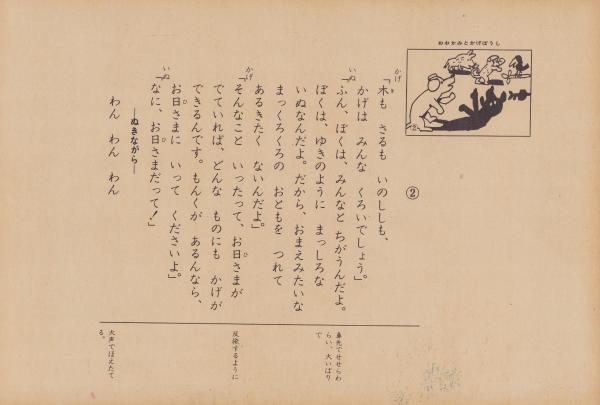 おおかみとかげぼうし
②
かげ
「木も　さるも　いのししも、
き
かげは　みんな　くろいでしょう。」
いぬ
「ふん、ぼくは、みんなと　ちがうんだよ。
ぼくは、ゆきのように　まっしろな
いぬなんだよ。だから、おまえみたいな
まっくろくろの　おともを　つれて
あるきたく　ないんだよ。」
かげ
「そんなこと　いったって、お日さまが
ひ
でていれば、どんな　ものにも　かげが
できるんです。もんくが　あるんなら、
お日さまに　いって　くださいよ。」
ひ
いぬ
「なに、お日さまだって！」
ひ
―ぬきながら―
わん　わん　わん
鼻先でせせらわ
らい、大いばり
で
反撥するように
大声でほえたて
る。